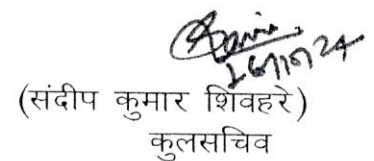 26/10/24
(संदीप कुमार शिवहरे)
कुलसचिव